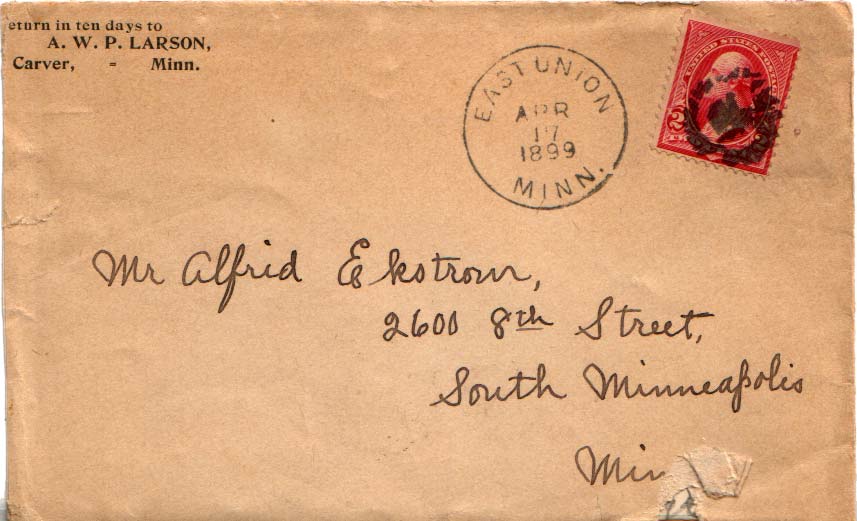 eturn in ten days to
A. W. P. LARSON,
Carver, = Minn.
EAST UNION
APR
17
1899
MINN.
UNITED STATES POSTAGE
2
Mr Alfrid Ekstrom,
2600 8th Street,
South Minneapolis
Min